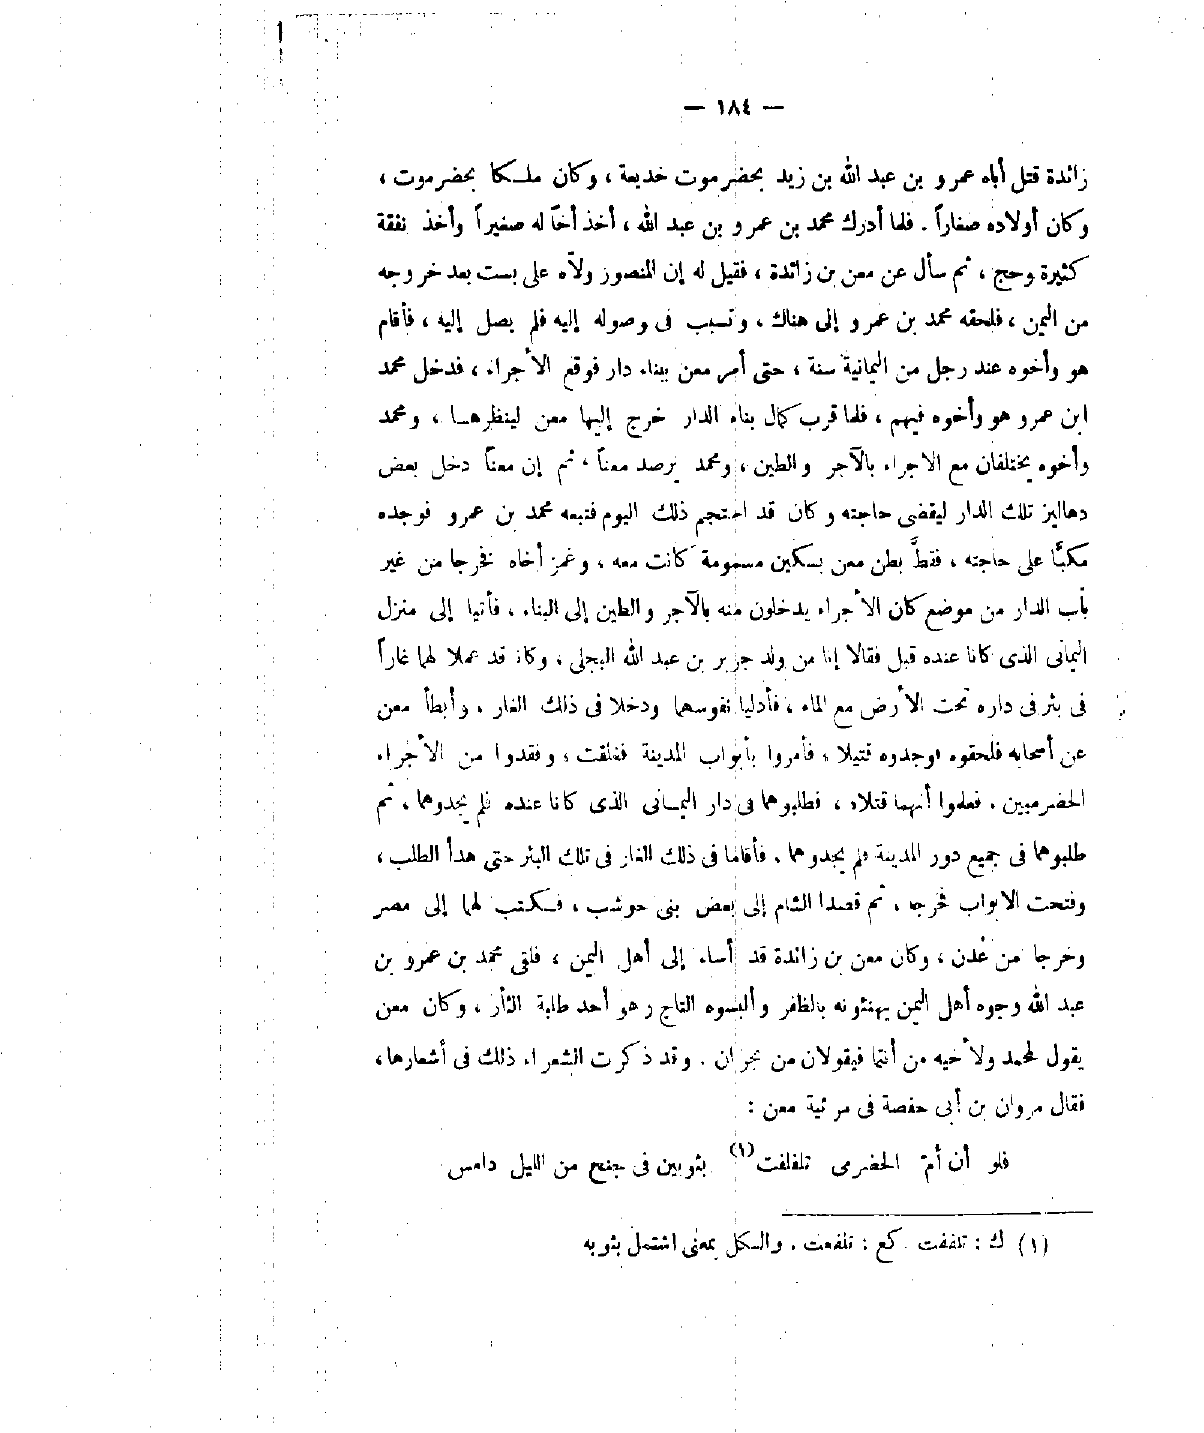 — ١٨٤ —
زائدة قتل أباه عمرو بن عبد الله بن زيد بحضرموت خديعة ، وكان ملكا بحضرموت ،
وكان أولاده صغاراً . فلما أدرك محمد بن عمرو بن عبد الله ، أخذ أخاً له صغيراً وأخذ نفقة
كثيرة وحج ، ثم سأل عن معن بن زائدة ، فقيل له إن المنصور ولاّه على بست بعد خروجه
من اليمن ، فلحقه محمد بن عمرو إلى هناك ، وتسبب فى وصوله إليه فلم يصل إليه ، فأقام
هو وأخوه عند رجل من اليمانية سنة ، حتى أمر معن ببناء دار فوقع الأجراء ، فدخل محمد
ابن عمرو هو وأخوه فيهم ، فلما قرب كمال بناء الدار خرج إليها معن لينظرها ، ومحمد
وأخوه يختلفان مع الاجراء بالآجر والطين ، ومحمد يرصد معناً ، ثم إن معناً دخل بعض
دهاليز تلك الدار ليقضى حاجته وكان قد احتجم ذلك اليوم فتبعه محمد بن عمرو فوجده
مكبًّا على حاجته ، فقطَّ بطن معن بسكين مسمومة كانت معه ، وغمز أخاه فخرجا من غير
باب الدار من موضع كان الأجراء يدخلون منه بالآجر والطين إلى البناء ، فأتيا إلى منزل
اليمانى الذى كانا عنده قبل فقالا إنا من ولد جرير بن عبد الله البجلى ، وكان قد عملا لهما غاراً
فى بئر فى داره تحت الأرض مع الماء ، فأدليا نفوسهما ودخلا فى ذلك الغار ، وأبطأ معن
عن أصحابه فلحقوه فوجدوه قتيلا ، فأمروا بأبواب المدينة فغلقت ، وفقدوا من الأجراء
الحضرميين . فعلموا أنهما قتلاه ، فطلبوهما فى دار اليمانى الذى كانا عنده فلم يجدوهما ، ثم
طلبوهما فى جميع دور المدينة فلم يجدوهما . فأقاما فى ذلك الغار فى تلك البئر حتى هدأ الطلب ،
وفتحت الابواب فخرجا ، ثم قصدا الشام إلى بعض بنى حوشب ، فكتب لهما إلى مصر
وخرجا من عدن ، وكان معن بن زائدة قد أساء إلى أهل اليمن ، فلقى محمد بن عمرو بن
عبد الله وجوه أهل اليمن يهنئونه بالظفر وألبسوه التاج وهو أحد طلبة الثأر ، وكان معن
يقول لمحمد ولأخيه من أنتما فيقولان من نجران . وقد ذكرت الشعراء ذلك فى أشعارها ،
فقال مروان بن أبى حفصة فى مرثية معن :
فلو أن أمّ الحضرمى تلفلفت (١) بثوبين فى جنح من الليل دامس
(١) ك : تلففت . كع : تلفعت . والسكل بمعنى اشتمل بثوبه